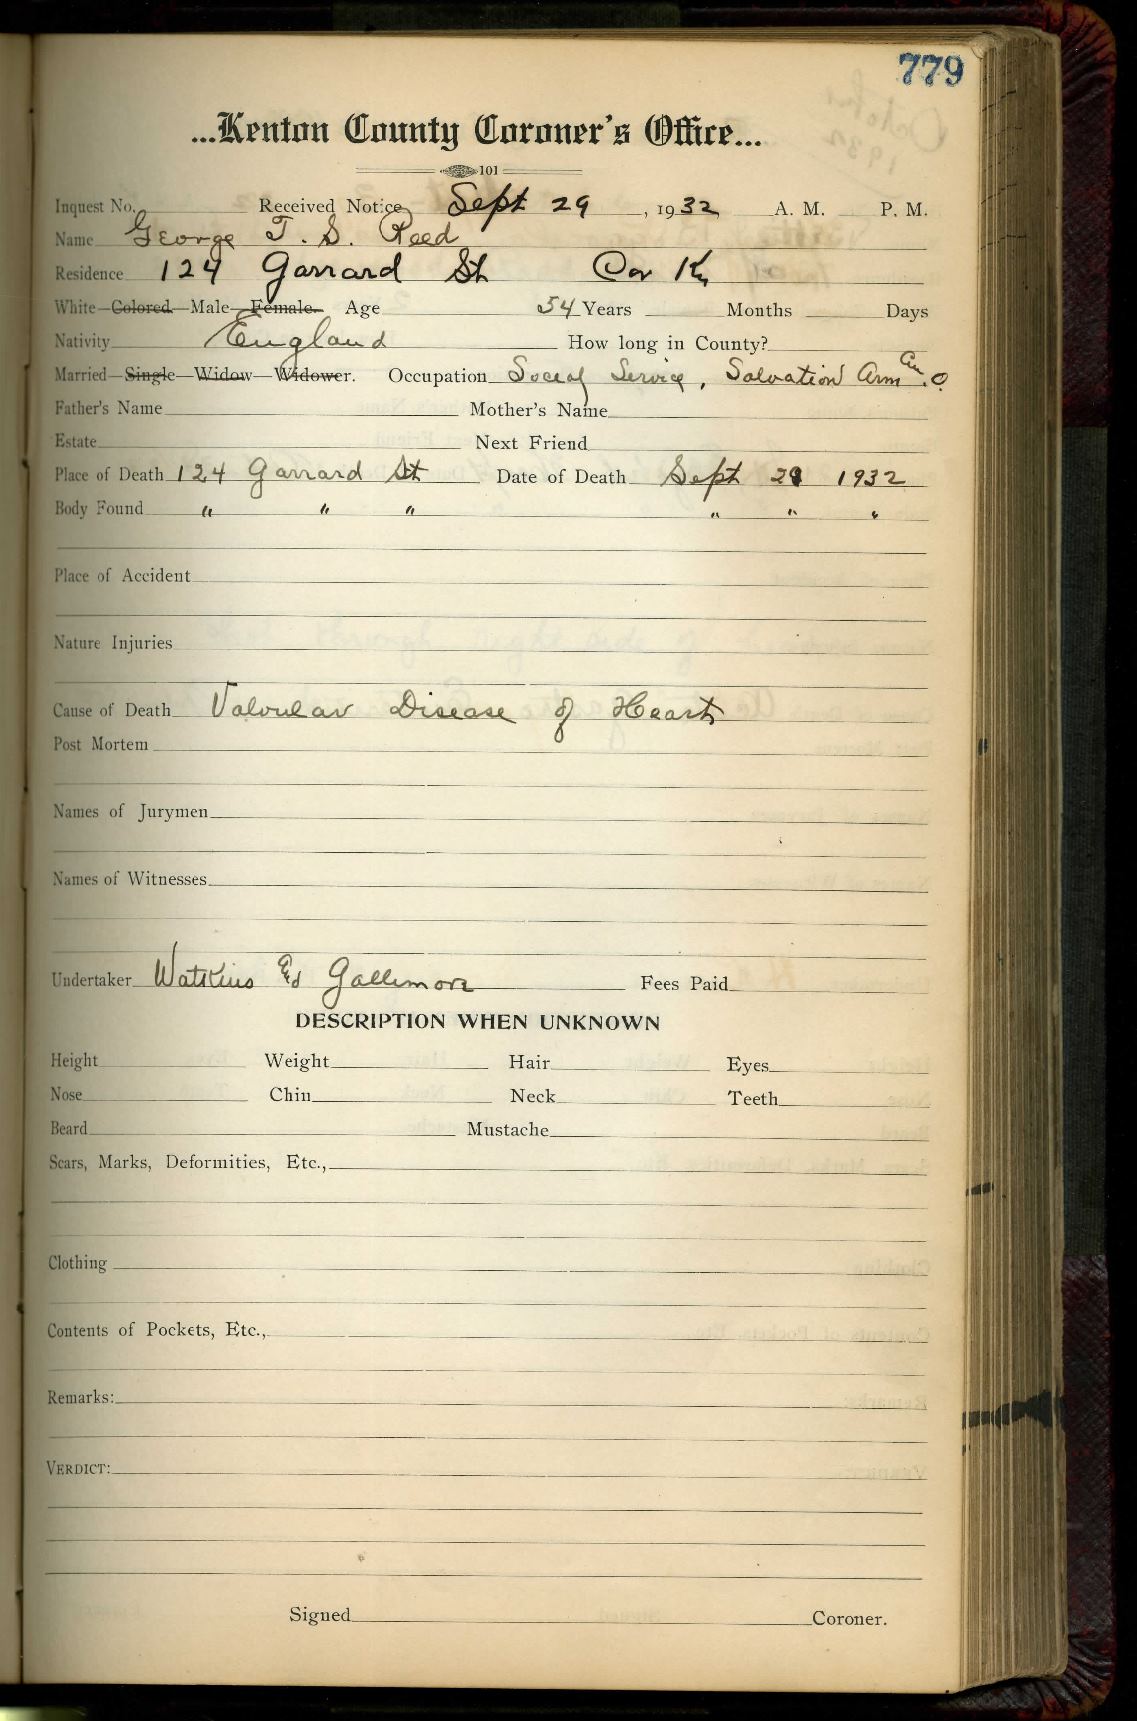 779
...Kenton County Coroner's Office...
101
Inquest No. Received Notice Sept 29, 1932 A. M. P. M.
Name George T. S. Reed
Residence 124 Garrard St Cov Ky
White—Colored—Male—Female. Age 54 Years Months Days
Nativity England How long in County?
Married—Single—Widow—Widower. Occupation Social Service, Salvation Arm Cin. O
Father's Name Mother's Name
Estate Next Friend
Place of Death 124 Garrard St Date of Death Sept 29 1932
Body Found " " " " " "
Place of Accident
Nature Injuries
Cause of Death Valvular Disease of Heart
Post Mortem
Names of Jurymen
Names of Witnesses
Undertaker Watkins & Gallimore Fees Paid
DESCRIPTION WHEN UNKNOWN
Height Weight Hair Eyes
Nose Chin Neck Teeth
Beard Mustache
Scars, Marks, Deformities, Etc.,
Clothing
Contents of Pockets, Etc.,
Remarks:
VERDICT:
Signed Coroner.